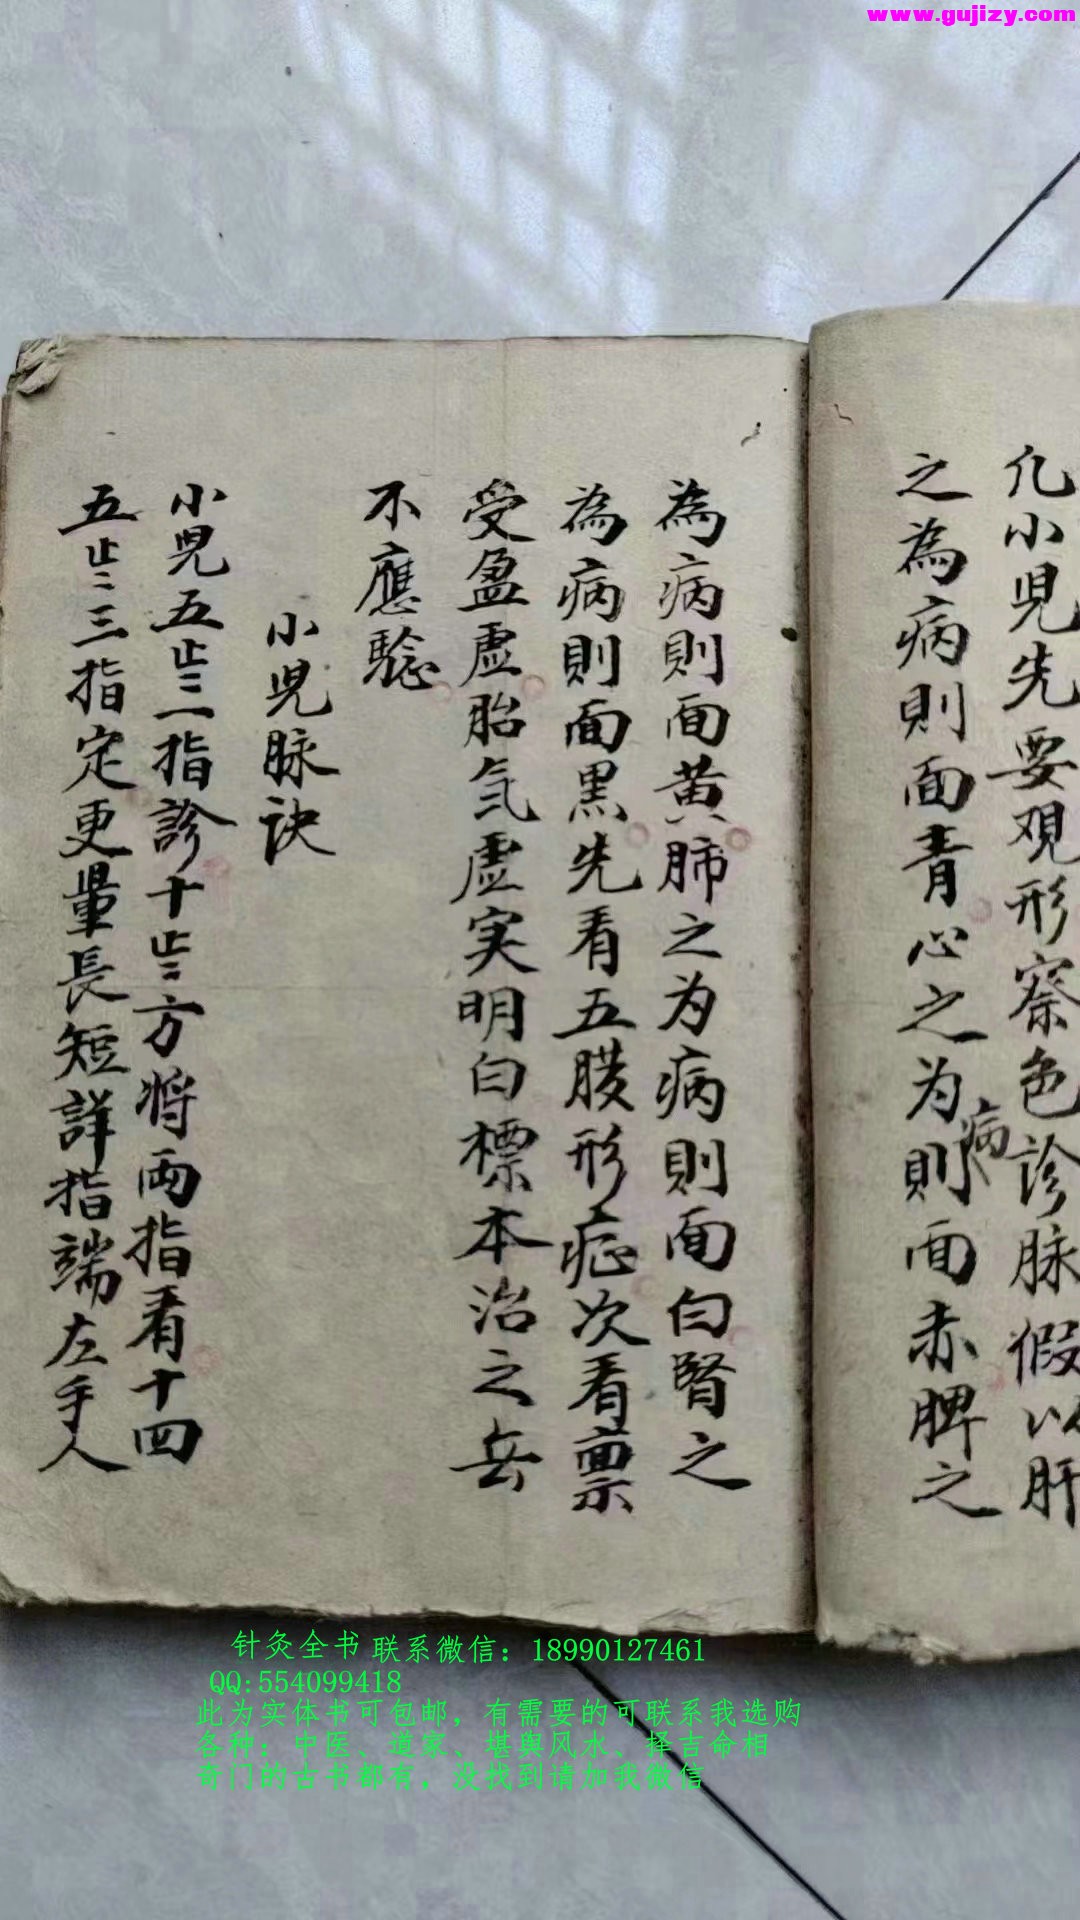 www.gujizy.com
凡小児先要观形察色诊脉假以肝
之為病則面青心之为病則面赤脾之
為病則面黄肺之为病則面白腎之
為病則面黒先看五腹形症次看禀
受盈虚胎氕虚实明白標本治之岳
不應驗
小児脉诀
小児五岁二指診十岁方将两指看十四
五岁三指定更量長短詳指端左手人
针灸全书 联系微信：18990127461
QQ:554099418
此为实体书可包邮，有需要的可联系我选购
各种：中医、道家、堪舆风水、择吉命相
奇门的古书都有，没找到请加我微信